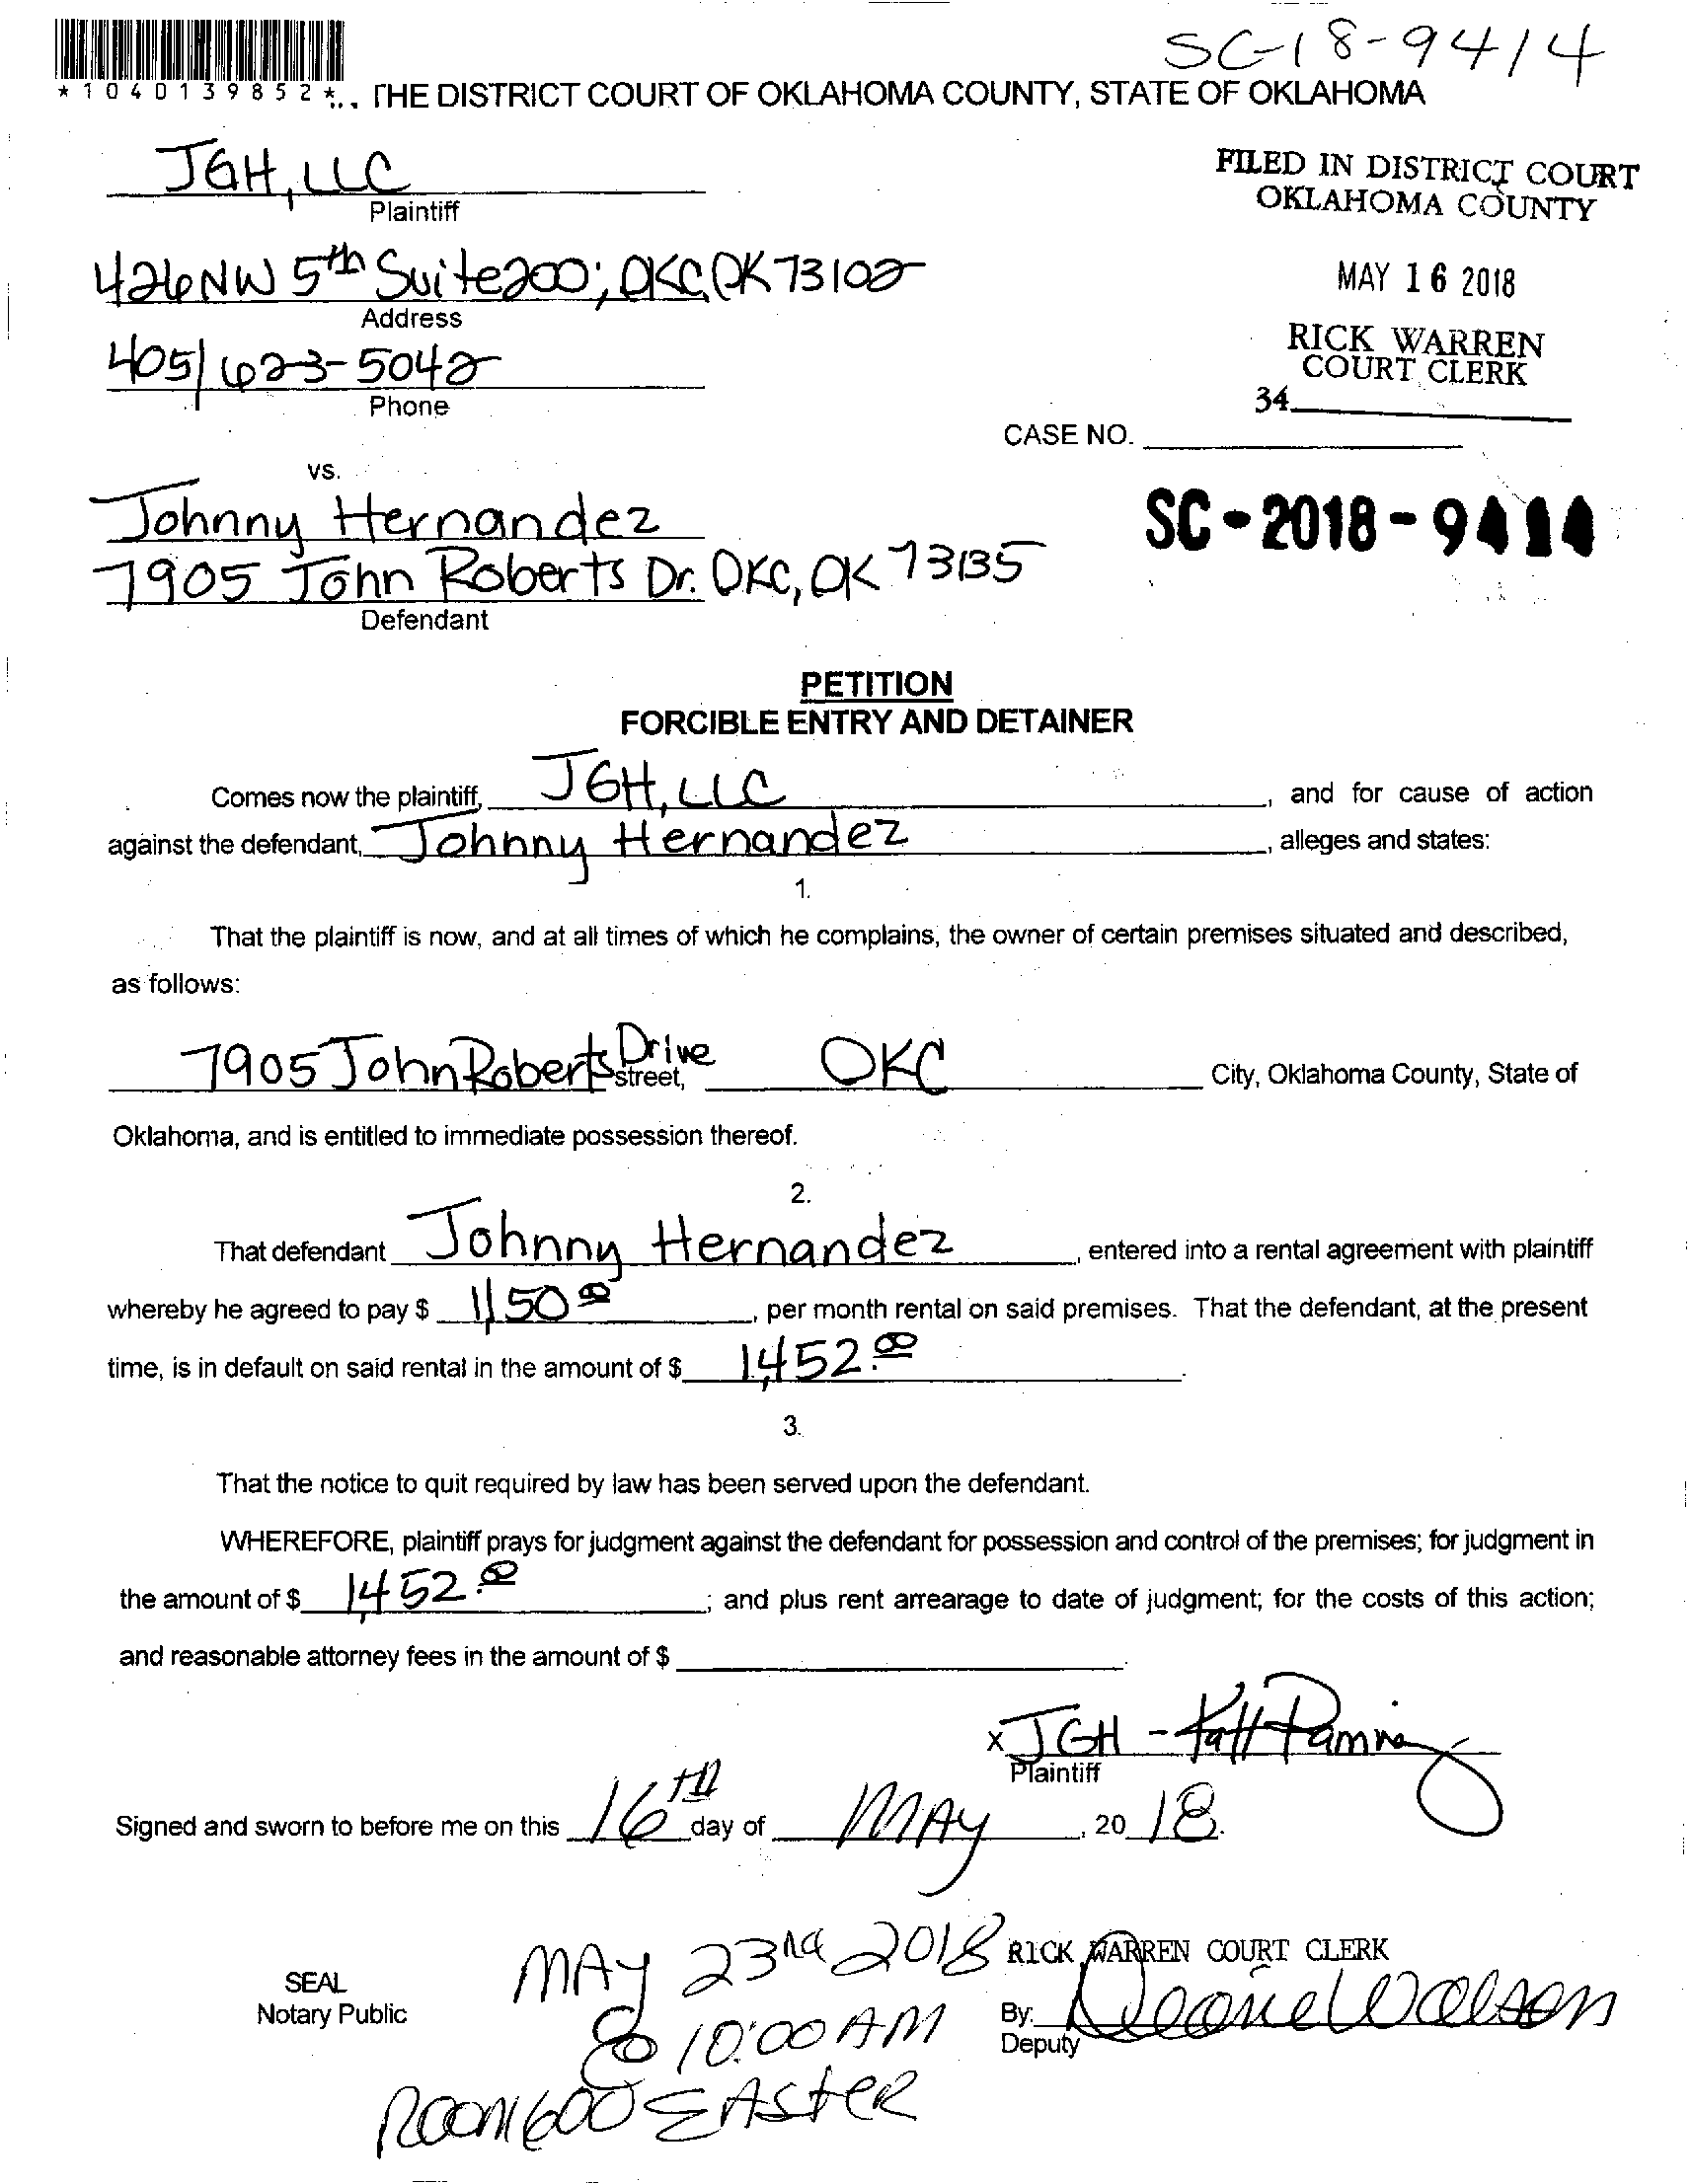 SC-18-9414
*1040139852*
THE DISTRICT COURT OF OKLAHOMA COUNTY, STATE OF OKLAHOMA
JGH, LLC
Plaintiff
FILED IN DISTRICT COURT
OKLAHOMA COUNTY
426 NW 5th Suite 200; OKC, OK 73102
Address
MAY 16 2018
405/623-5042
Phone
RICK WARREN
COURT CLERK
34
CASE NO.
vs.
Johnny Hernandez
7905 John Roberts Dr. OKC, OK 73135
Defendant
SC-2018-9414
PETITION
FORCIBLE ENTRY AND DETAINER
Comes now the plaintiff, JGH, LLC, and for cause of action
against the defendant, Johnny Hernandez, alleges and states:
1.
That the plaintiff is now, and at all times of which he complains, the owner of certain premises situated and described,
as follows:
7905 John Roberts Drive street, OKC City, Oklahoma County, State of
Oklahoma, and is entitled to immediate possession thereof.
2.
That defendant Johnny Hernandez, entered into a rental agreement with plaintiff
whereby he agreed to pay $ 1150.00, per month rental on said premises. That the defendant, at the present
time, is in default on said rental in the amount of $ 1,452.00.
3.
That the notice to quit required by law has been served upon the defendant.
WHEREFORE, plaintiff prays for judgment against the defendant for possession and control of the premises; for judgment in
the amount of $ 1,452.00; and plus rent arrearage to date of judgment; for the costs of this action;
and reasonable attorney fees in the amount of $
x JGH -
Plaintiff
Signed and sworn to before me on this 16TH day of MAY, 20 18.
MAY 23rd 2018
@ 10:00 AM
Room 600 EASTER
SEAL
Notary Public
RICK WARREN COURT CLERK
By:
Deputy